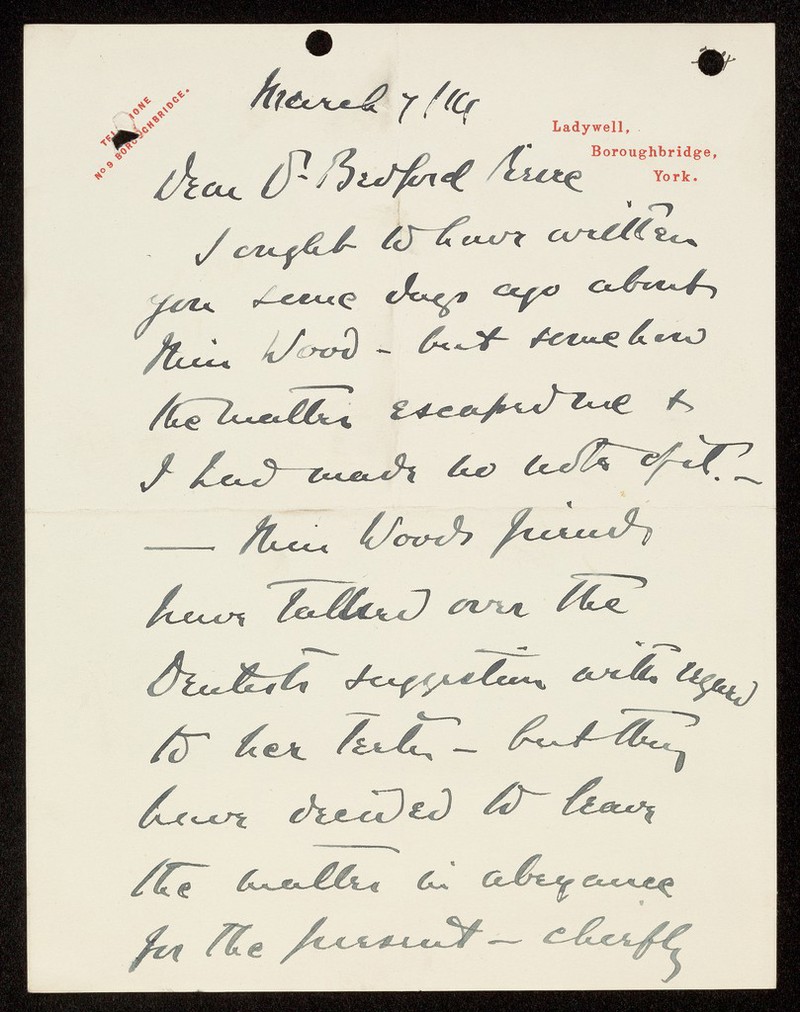 TELEPHONE
No 9 BOROUGHBRIDGE.
March 7/16
Ladywell,
Boroughbridge,
York.
Dear Dr Bedford Pierce
I ought to have written
you some days ago about
Miss Wood - but somehow
the matter escaped me &
I had made no note of it. -
— Miss Woods friends
have talked over the
Dentists suggestion with regard
to her teeth - but they
have decided to leave
the matter in abeyance
for the present - chiefly